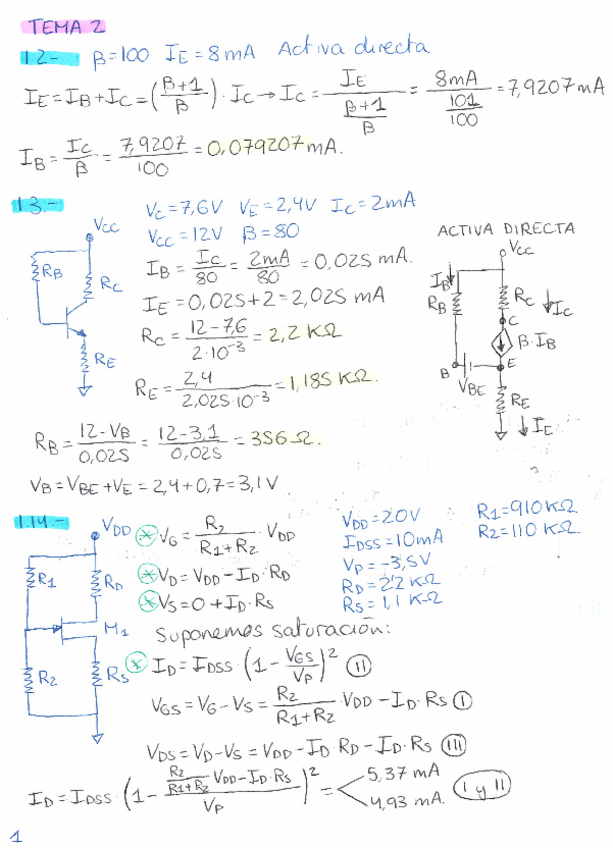 TEMA 2
1.2.- β=100 IE=8mA Activa directa
IE=IB+IC=((β+1)/β)·IC→IC=IE/((β+1)/β)=8mA/(101/100)=7,9207mA
IB=IC/β=7,9207/100=0,079207mA.
1.3.- VC=7,6V VE=2,4V IC=2mA
VCC=12V β=80
VCC
RB
RC
RE
IB=IC/80=2mA/80=0,025 mA.
IE=0,025+2=2,025 mA
RC=(12-7,6)/(2·10^-3)=2,2 KΩ
RE=2,4/(2,025·10^-3)=1,185 KΩ.
RB=(12-VB)/0,025=(12-3,1)/0,025=356Ω.
VB=VBE+VE=2,4+0,7=3,1V
ACTIVA DIRECTA
VCC
IB
RB
RC
IC
C
β·IB
B
E
VBE
RE
IE
1.14.-
VDD
R1
RD
M1
R2
RS
* VG=R2/(R1+R2)·VDD
* VD=VDD-ID·RD
* VS=0+ID·RS
VDD=20V
IDSS=10mA
VP=-3,5V
RD=2'2 KΩ
RS=1,1 KΩ
R1=910KΩ
R2=110KΩ
Suponemos saturación:
* ID=IDSS·(1-VGS/VP)² II
VGS=VG-VS=R2/(R1+R2)·VDD-ID·RS I
VDS=VD-VS=VDD-ID·RD-ID·RS III
ID=IDSS·(1-(R2/(R1+R2)·VDD-ID·RS)/VP)²= 5,37 mA
4,93 mA. I y II
1